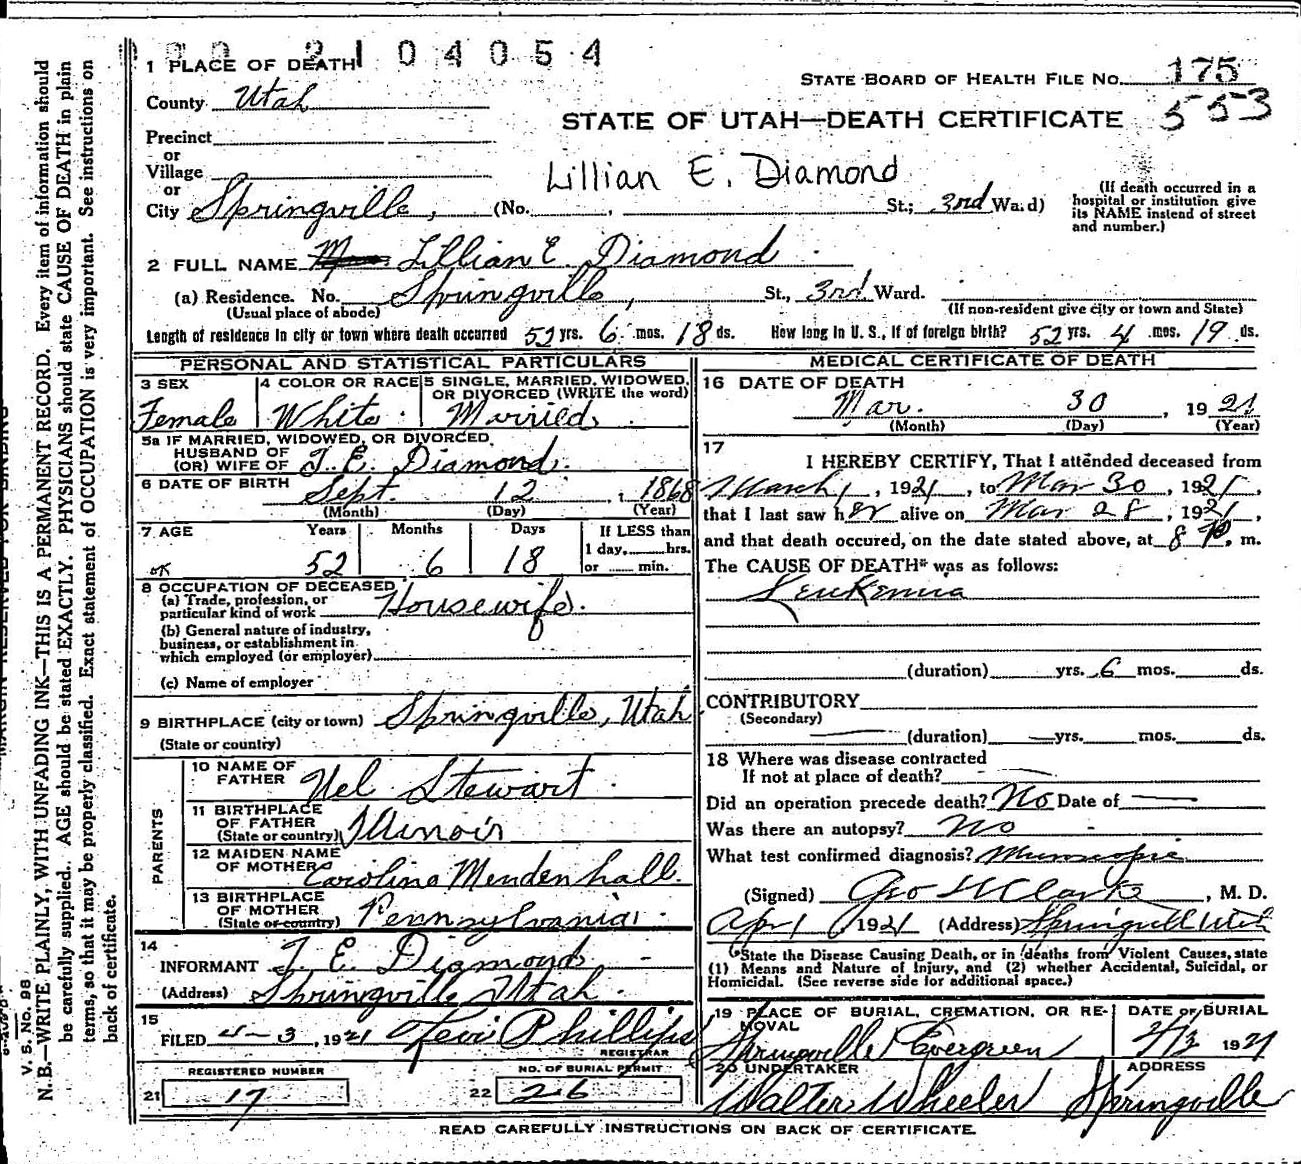 2104054
1 PLACE OF DEATH
STATE BOARD OF HEALTH FILE NO. 175
County Utah
553
STATE OF UTAH—DEATH CERTIFICATE
Precinct
or
Village
Lillian E. Diamond
or
City Springville, (No. , St.; 3rd Ward)
(If death occurred in a hospital or institution give its NAME instead of street and number.)
2 FULL NAME Lillian E. Diamond
(a) Residence. No. Springville, St., 3rd Ward.
(Usual place of abode) (If non-resident give city or town and State)
Length of residence in city or town where death occurred 52 yrs. 6 mos. 18 ds. How long in U. S., if of foreign birth? 52 yrs. 4 mos. 19 ds.
PERSONAL AND STATISTICAL PARTICULARS
3 SEX Female
4 COLOR OR RACE White
5 SINGLE, MARRIED, WIDOWED, OR DIVORCED (WRITE the word) Married
5a IF MARRIED, WIDOWED, OR DIVORCED,
HUSBAND OF
(OR) WIFE OF J. E. Diamond.
6 DATE OF BIRTH Sept. 12, 1868
(Month) (Day) (Year)
7 AGE Years Months Days If LESS than
1 day, hrs.
ok 52 6 18 or min.
8 OCCUPATION OF DECEASED
(a) Trade, profession, or
particular kind of work Housewife.
(b) General nature of industry,
business, or establishment in
which employed (or employer)
(c) Name of employer
9 BIRTHPLACE (city or town) Springville, Utah
(State or country)
PARENTS
10 NAME OF
FATHER Nel Stewart
11 BIRTHPLACE
OF FATHER
(State or country) Illinois
12 MAIDEN NAME
OF MOTHER Caroline Mendenhall.
13 BIRTHPLACE
OF MOTHER
(State or country) Pennsylvania.
14
INFORMANT J. E. Diamond
(Address) Springville Utah.
15
FILED 4-3, 1921 Levi Phillips
REGISTRAR
REGISTERED NUMBER
21 17
NO. OF BURIAL PERMIT
22 26
MEDICAL CERTIFICATE OF DEATH
16 DATE OF DEATH
Mar. 30, 1921
(Month) (Day) (Year)
17
I HEREBY CERTIFY, That I attended deceased from
March 1, 1921, to Mar 30, 1921,
that I last saw her alive on Mar 28, 1921,
and that death occured, on the date stated above, at 8 P. m.
The CAUSE OF DEATH* was as follows:
Leukemia
(duration) yrs. 6 mos. ds.
CONTRIBUTORY
(Secondary)
(duration) yrs. mos. ds.
18 Where was disease contracted
If not at place of death?
Did an operation precede death? No Date of
Was there an autopsy? No
What test confirmed diagnosis?
(Signed) Geo Clarke, M. D.
Apr 1 1921 (Address) Springville Utah
*State the Disease Causing Death, or in deaths from Violent Causes, state
(1) Means and Nature of Injury, and (2) whether Accidental, Suicidal, or
Homicidal. (See reverse side for additional space.)
19 PLACE OF BURIAL, CREMATION, OR RE-
MOVAL
Springville Evergreen
DATE OF BURIAL
4/3 1921
20 UNDERTAKER
Walter Wheeler
ADDRESS
Springville
READ CAREFULLY INSTRUCTIONS ON BACK OF CERTIFICATE.
V. S. No. 98
MARGIN RESERVED FOR BINDING
N. B.—WRITE PLAINLY, WITH UNFADING INK—THIS IS A PERMANENT RECORD. Every item of information should
be carefully supplied. AGE should be stated EXACTLY. PHYSICIANS should state CAUSE OF DEATH in plain
terms, so that it may be properly classified. Exact statement of OCCUPATION is very important. See instructions on
back of certificate.